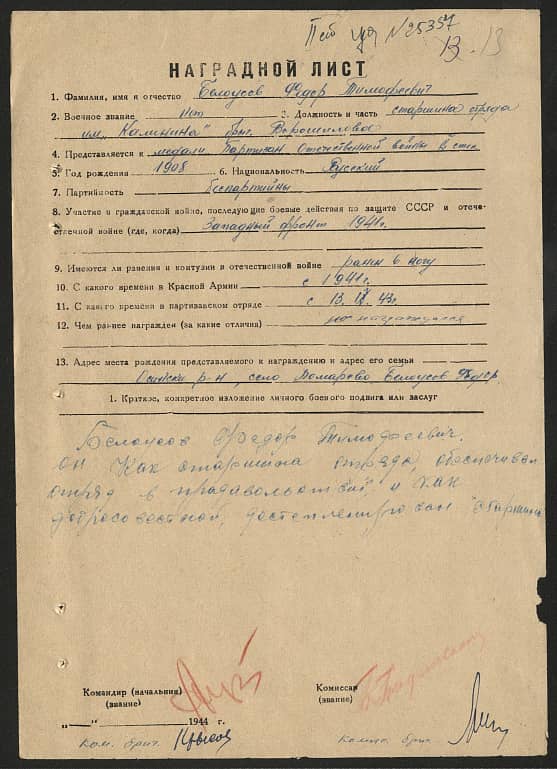 №25357
13 13
НАГРАДНОЙ ЛИСТ
1. Фамилия, имя и отчество Белоусов Федор Тимофеевич
2. Военное звание нет 3. Должность и часть старшина отряда
им. "Калинина" бриг. Ворошилова
4. Представляется к медали Партизан Отечественной войны II степ
5. Год рождения 1908 6. Национальность Русский
7. Партийность Беспартийный
8. Участие в гражданской войне, последующие боевые действия по защите СССР и отече-
ственной войне (где, когда) Западный фронт 1941г.
9. Имеются ли ранения и контузии в отечественной войне ранен в ногу
10. С какого времени в Красной Армии с 1941г.
11. С какого времени в партизанском отряде с 13. 43г.
12. Чем раннее награжден (за какие отличия) не награждался
13. Адрес места рождения представляемого к награждению и адрес его семьи
р-н, село Белоусов Федор.
1. Краткое, конкретное изложение личного боевого подвига или заслуг
Белоусов Федор Тимофеевич.
он как старшина отряда, обеспечивал
отряд в продавольствии и как
добросовестной, старшина
Командир (начальник)
(звание)
Комиссар
(звание)
"—" 1944 г.
Ком. бриг.
бриг.